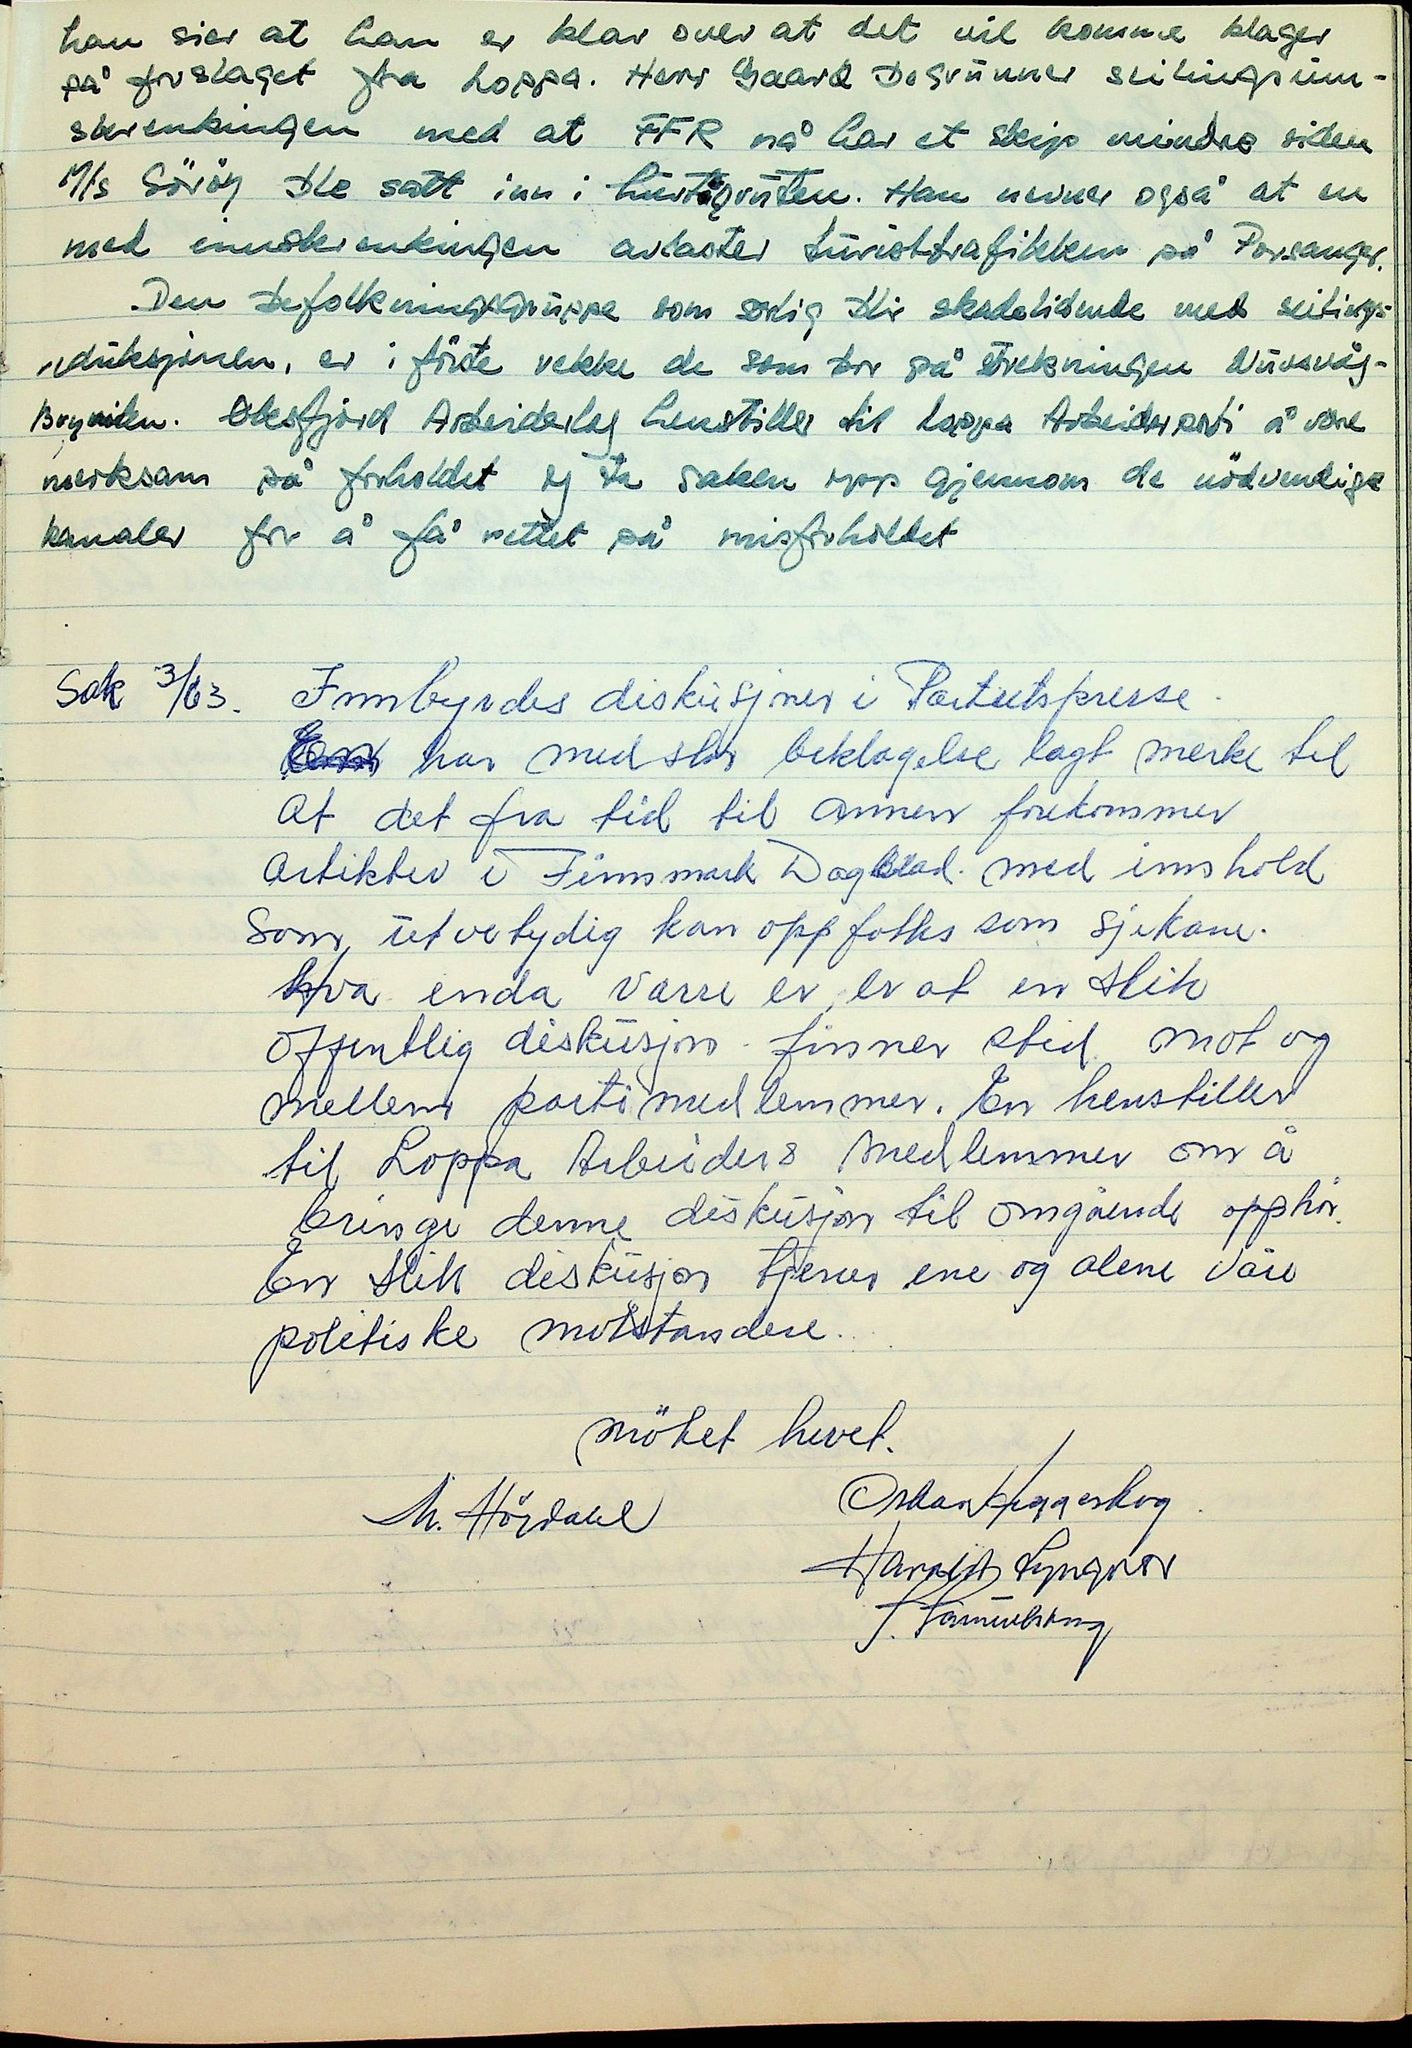 han sier at han er klar over at det vil komme klager
på forslaget fra Loppa. Herr Gaare begrunner seilingsinn-
skrenkingen med at FFR nå har et skip mindre siden
M/s Söröy ble satt inn i hurtigruten. Han nevner også at en
med innskrenkingen avlaster turisttrafikken på Porsanger.
Den befolkningsgruppe som særlig blir skadelidende med seilings-
reduksjonen, er i förste rekke de som bor på strekningen Nuvsvåg-
Öksfjord Arbeiderlag henstiller til Loppa Arbeiderparti å være
merksam på forholdet og ta saken opp gjennom de nödvendige
kanaler for å få rettet på misforholdet
Sak 3/63. Innbyrdes diskusjoner i Partietspresse.
har med stor beklagelse lagt merke til
at det fra tid til annen forekommer
artikler i Finnmark Dagblad med innhold
som utvetydig kan oppfattes som sjikane.
hva enda værre er, er at en slik
offentlig diskusjon finner sted mot og
mellem partimedlemmer. En henstiller
til Loppa Arbeiders medlemmer om å
bringe denne diskusjon til omgående opphör.
En slik diskusjon tjener ene og alene våre
politiske motstandere.
möhet hevet.
M. Höydahl
Oskar Heggeskog
Harald Lyngmor
J. Samuelsen